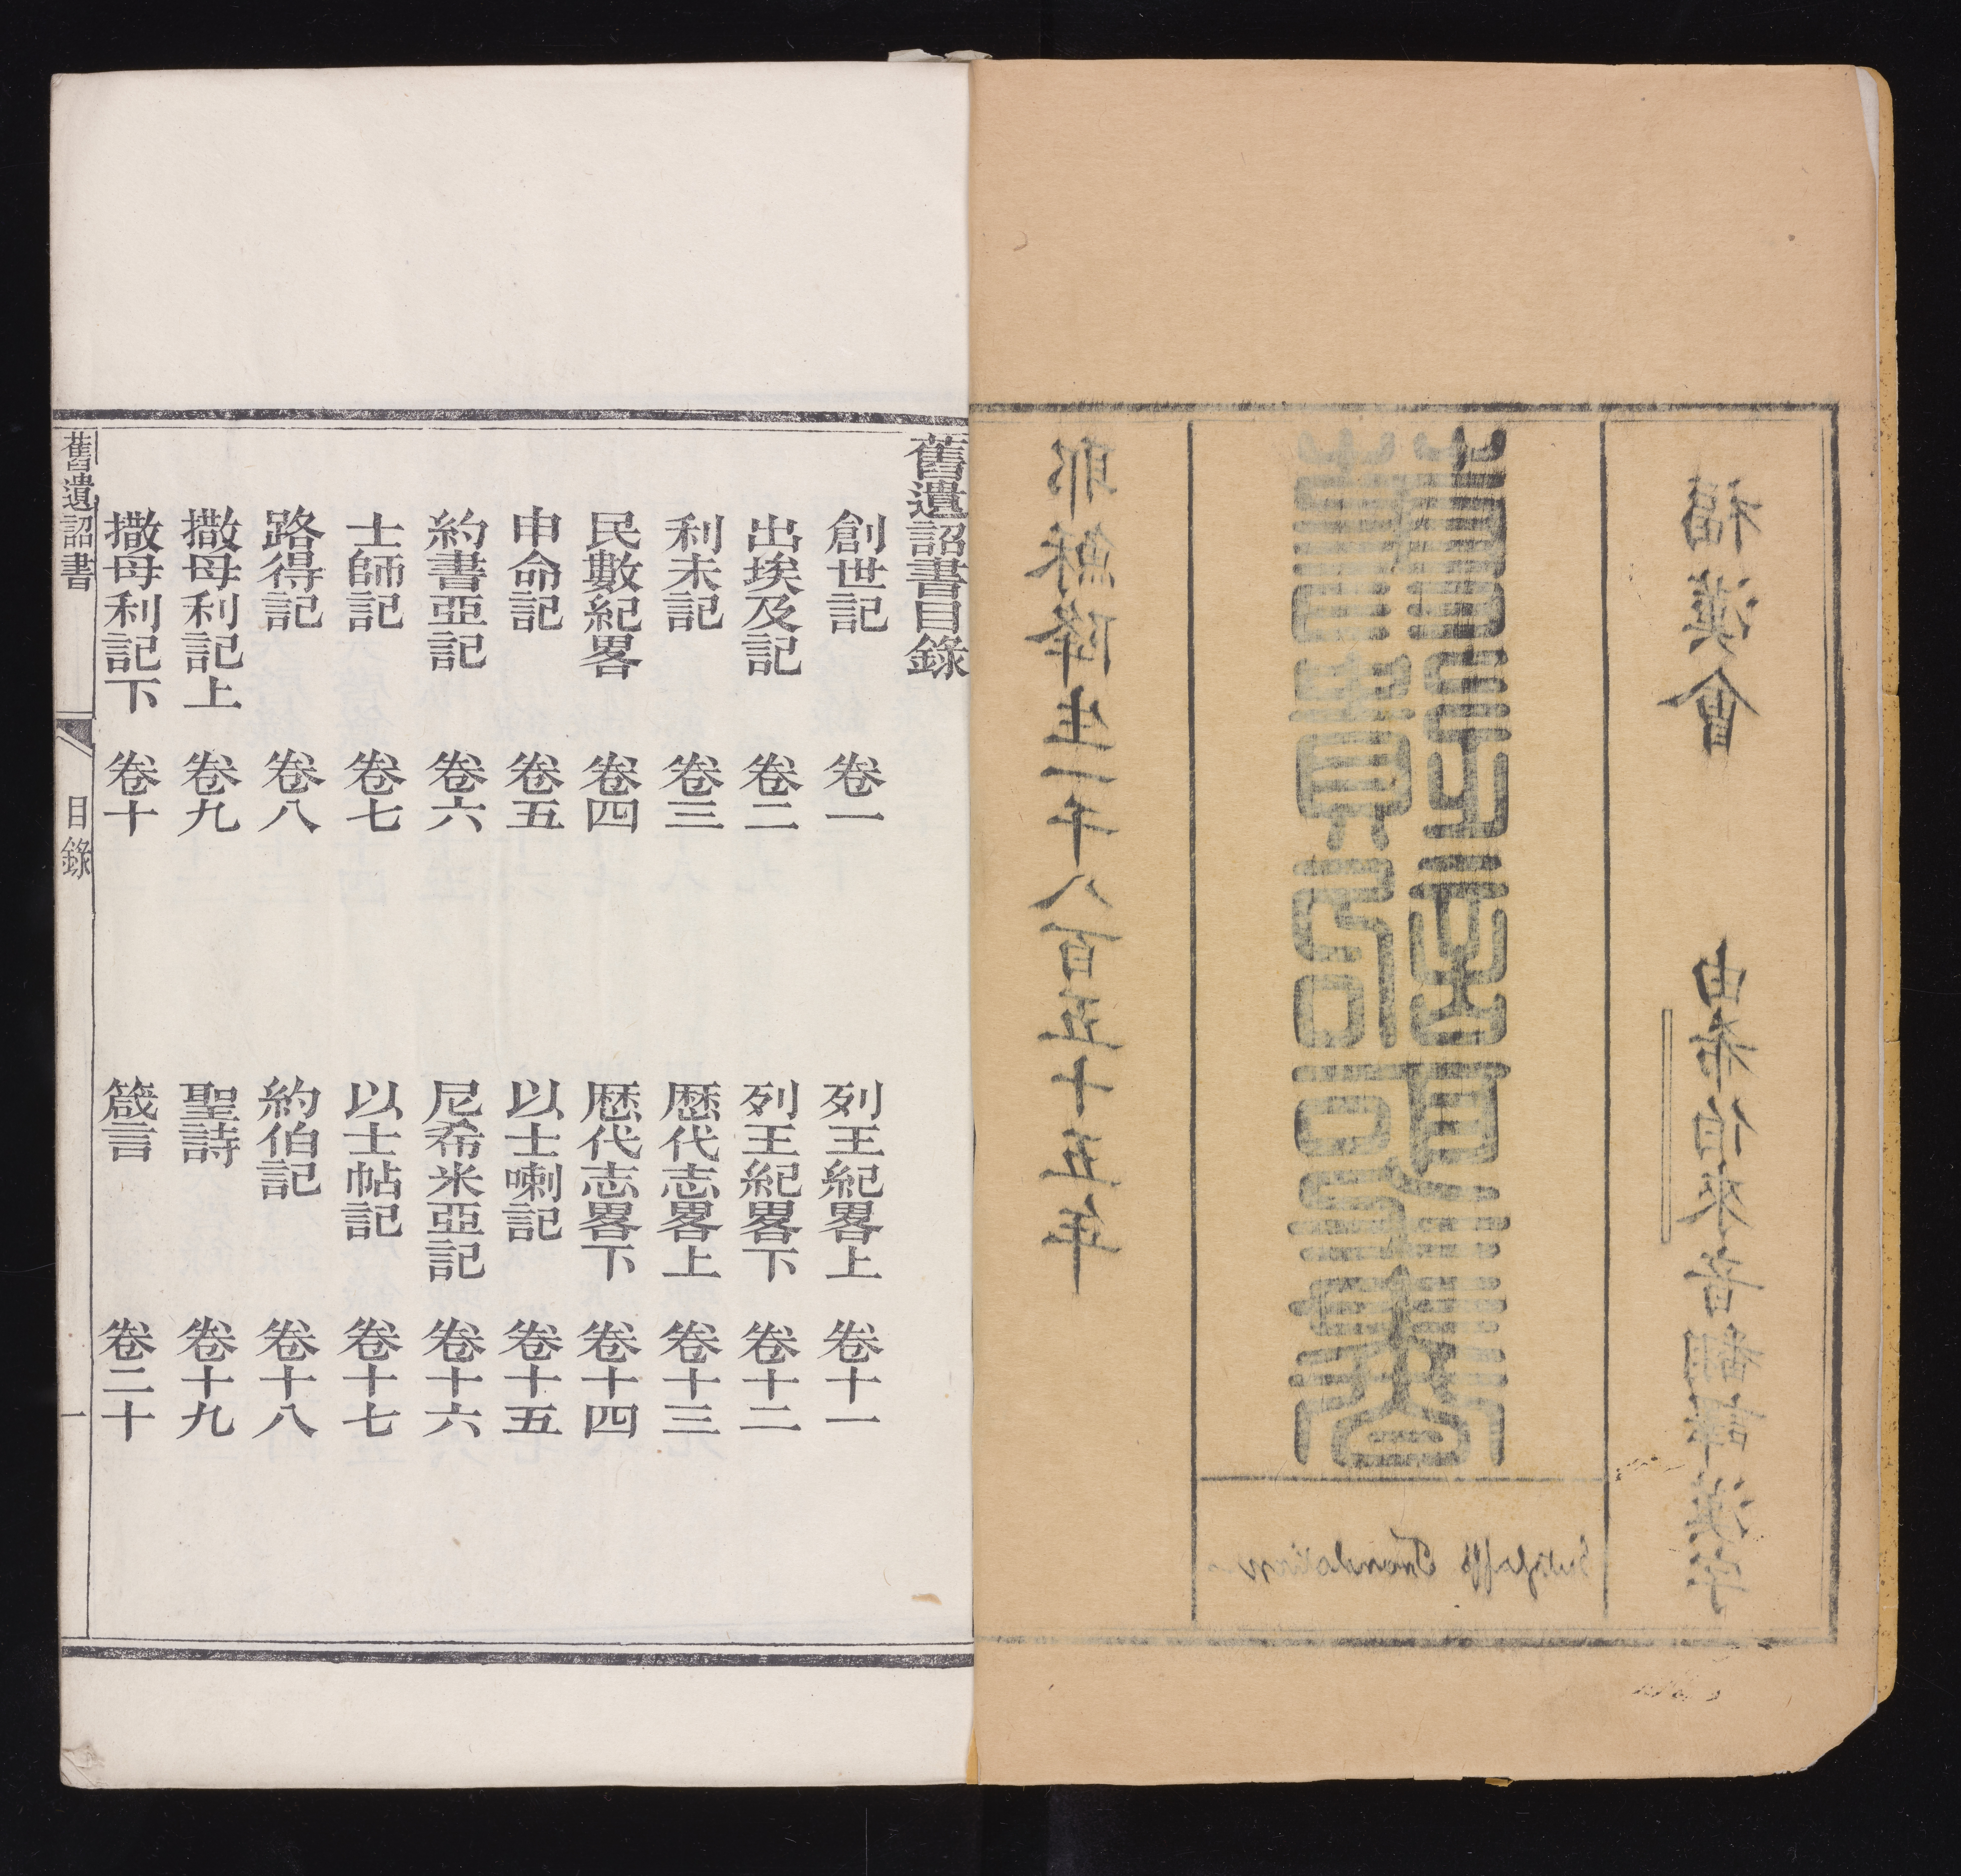 耶穌降生一千八百五十五年
福漢會 由希伯來音翻譯漢字
Gutzlaff's Translation
舊遺詔書目錄
創世記 卷一
出埃及記 卷二
利未記 卷三
民數紀畧 卷四
申命記 卷五
約書亞記 卷六
士師記 卷七
路得記 卷八
撒母利記上 卷九
撒母利記下 卷十
列王紀畧上 卷十一
列王紀畧下 卷十二
歷代志畧上 卷十三
歷代志畧下 卷十四
以士喇記 卷十五
尼希米亞記 卷十六
以士帖記 卷十七
約伯記 卷十八
聖詩 卷十九
箴言 卷二十
舊遺詔書 目錄 一